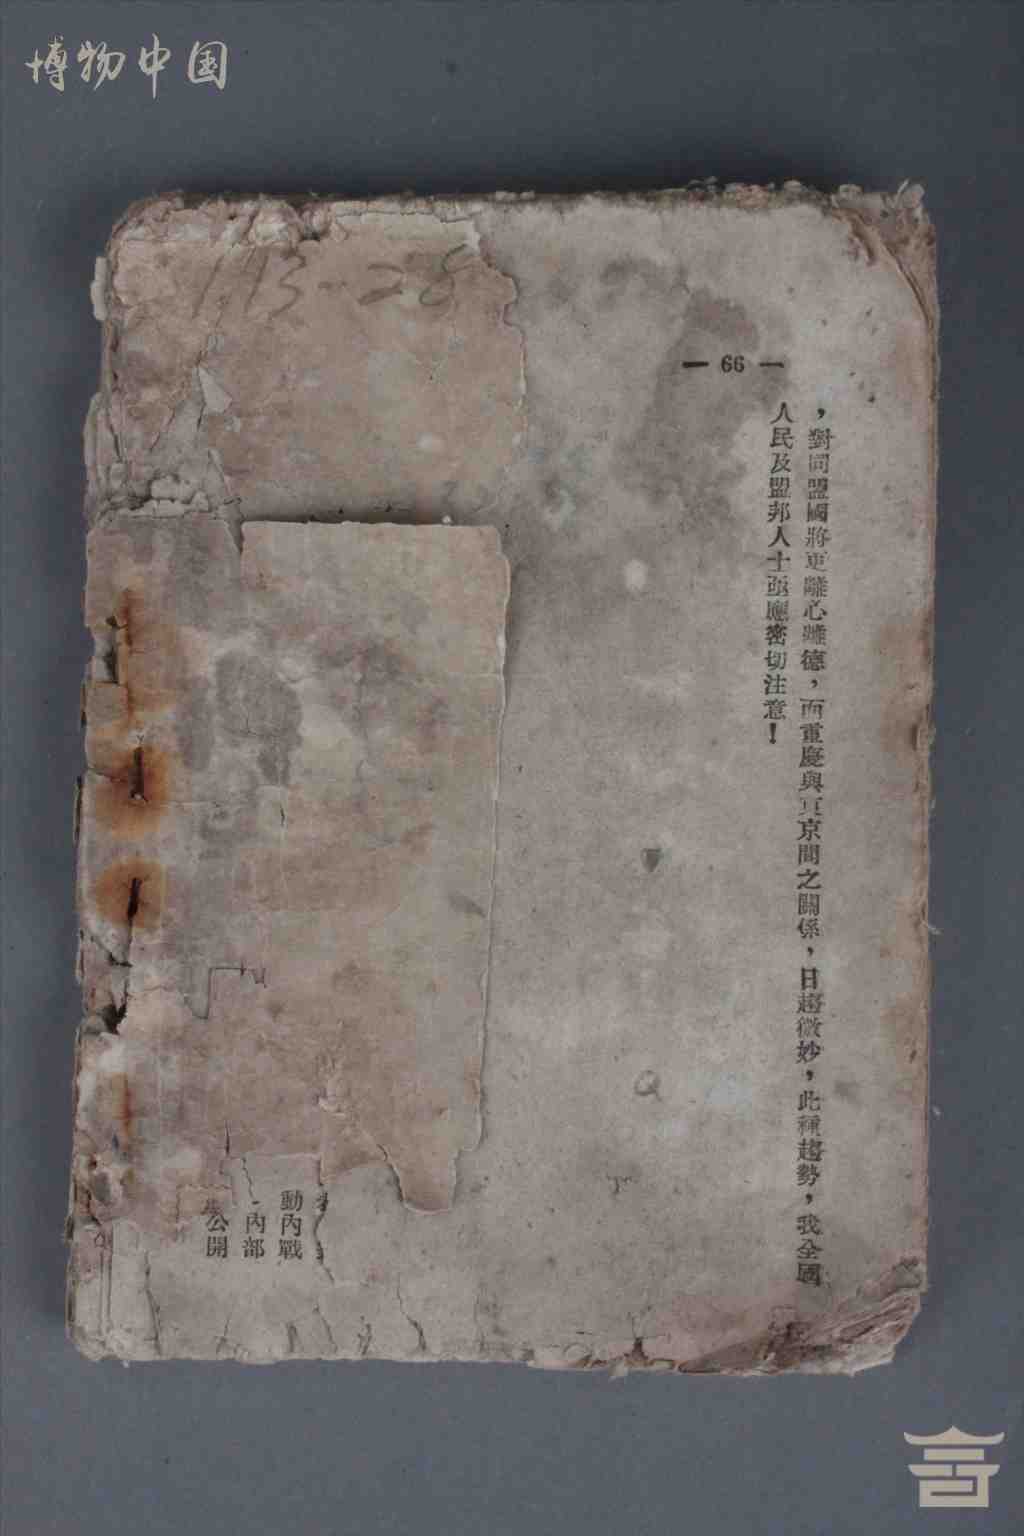 博物中国
113-28
— 66 —
，對同盟國將更離心離德，而重慶與東京間之關係，日趨微妙，此種趨勢，我全國
人民及盟邦人士亟應密切注意！
動內戰
內部
公開